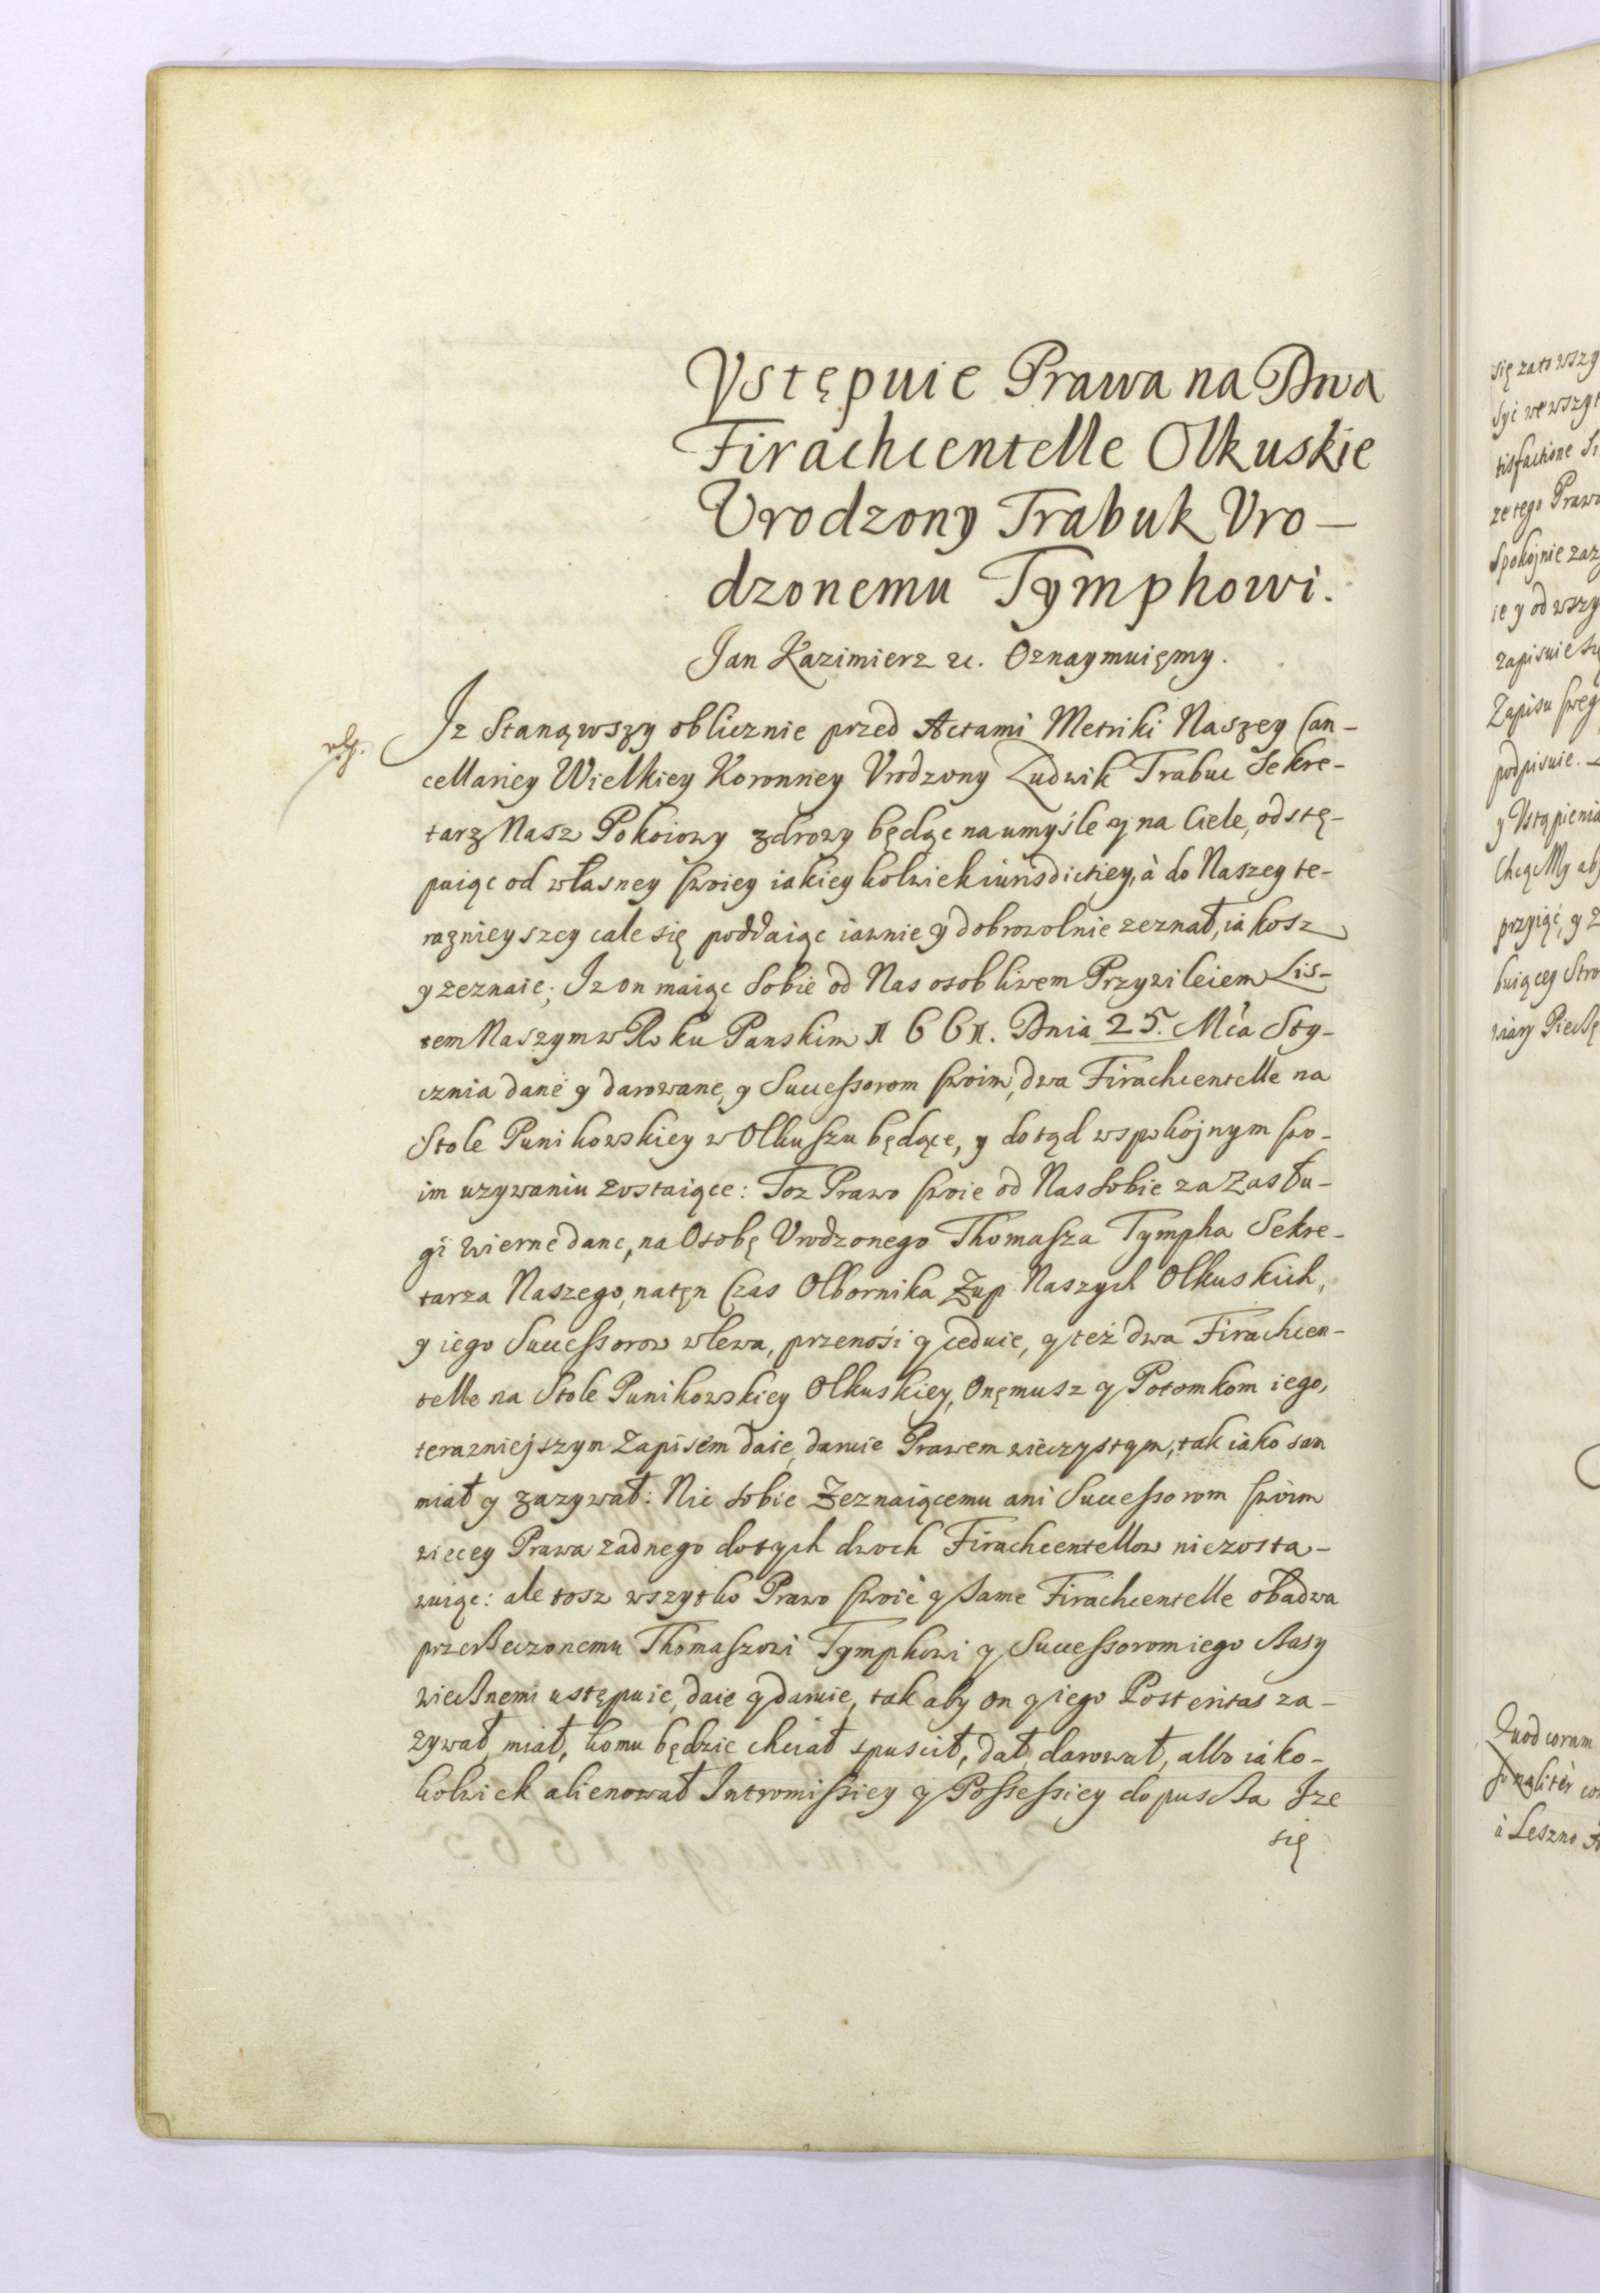 Vstępuie Prawa na Dwa
Firachcentelle Olkuskie
Vrodzony Trabuk Vro-
dzonemu Tymphowi.
Jan Kazimierz &c. Oznaymuięmy.
Iz Stanąwszy oblicznie przed Actami Metriki Naszey Can-
cellariey Wielkiey Koronney Vrodzony Ludwik Trabuc Sekre-
tarz Nasz Pokoiowy zdrowy będąc na umyśle y na Ciele, odstę-
puiąc od własney swoiey iakiey kolwiek iurisdictiey, à do Naszey te-
raznieyszey cale się poddaiąc iawnie y dobrowolnie zeznał, iakosz
y zeznaie; Iz on maiąc Sobie od Nas osobliwem Przywileiem Lis-
tem Naszym w Roku Panskim 1661. Dnia 25. Mca Sty-
cznia dane y darowane, y Successorom swoim, dwa Firachcentelle na
Stole Punikowskiey w Olkuszu będące, y dotąd wspokojnym swo-
im uzywaniu zostaiące: Toz Prawo swoie od Nas Sobie za Zasłu-
gi wierne dane, na Osobę Vrodzonego Thomasza Tympha Sekre-
tarza Naszego, natęn Czas Olbornika Zup Naszych Olkuskich,
y iego Successorow wlewa, przenośi y ceduie, y też dwa Firachcen-
telle na Stole Punikowskiey Olkuskiey, Onęmusz y Potomkom iego,
terazniejszym Zapisem daie, daruie Prawem wieczystym, tak iako sam
miał y zazywał: Nic sobie Zeznaiącemu ani Successorom swoim
wiecey Prawa zadnego do tych dwoch Firachcentellow niezosta-
wuiąc: ale tosz wszytko Prawo swoie y same Firachcentelle obadwa
przerzeczonemu Thomaszowi Tymphowi y Successorom iego czasy
wiecznemi ustępuie, daie y daruie, tak aby on y iego Posteritas za-
zywał, miał, komu będzie chciał spuscił, dał, darował, albo iako-
kolwiek alienował Intromissiey y Possessiey dopuszcza Ize
się
się zato wszy
tisfactione
ze tego Prawa
Spokojnie zaz
ie y od wszy
zapisuie
Zapisu sweg
podpisuie.
y Vstąpienia
Chcąc My ab
przyiąć, y
buiącey
Quod coram
à Leszno